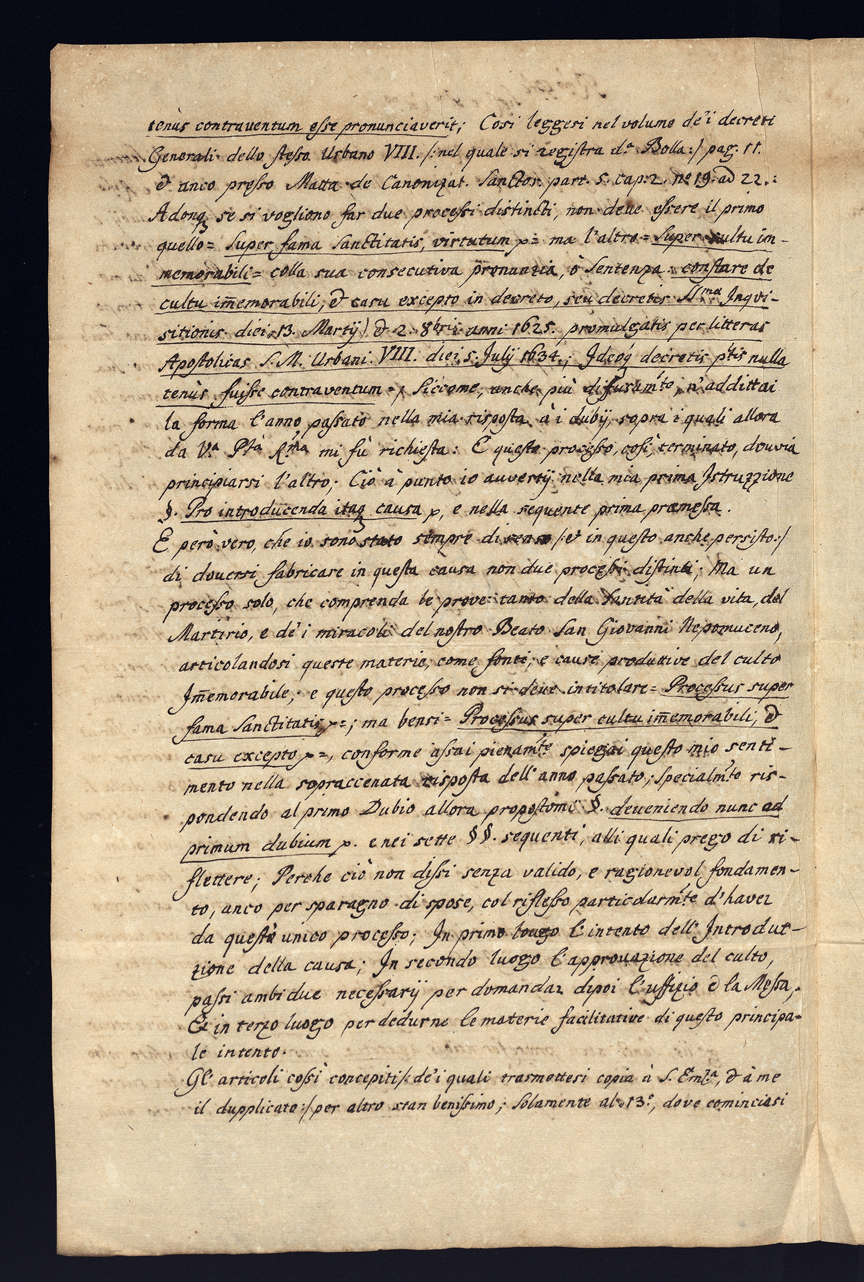 tenùs contraventum esse pronunciaverit; Così leggesi nel volume de'i decreti
Generali dello stesso Urbano VIII. /: nel quale si registra d.ª Bolla:/ pag. 11.
& anco presso Matta de Canonizat. Sanctor. part. 5. cap. 2. nº 19. ad 22.:
Adonq3 se si vogliono far due processi distincti, non deue essere il primo
quello= Super fama Sanctitatis, virtutum p= ma l'altro= Super cultu im-
memorabili= colla sua consecutiva pronunzia, ò Sentenza: constare de
cultu im̅emorabili, & casu excepto in decreto, seu decretis S.mae Inqui-
sitionis diei 13. Martij) & 2. 8bris anni 1625. promulgatis per litteras
Apostolicas S. M. Urbani VIII. diei 5. Julij 1634.; Ideoq3 decretis p.tis nulla
tenùs fuisse contraventum= p. Siccome, anche più diffusam.te, n'addittai
la forma l'anno passato nella mia risposta à i dubij, sopra i quali allora
da V.ª P.tà R.ma mi fù richiesta: E questo processo, così terminato, douria
principiarsi l'altro; Ciò à punto io auvertij nella mia prima Istruzzione
§. Pro introducenda itaq3 causa p, e nella sequente prima premessa.
E però vero, che io sono stato sempre di senso /: & in questo anche persisto:/
di douersi fabricare in questa causa non due processi distinti; Ma un
processo solo, che comprenda le prove tanto della Santità della vita, del
Martirio, e de'i miracoli del nostro Beato San Giovanni Nepomuceno,
articolandosi queste materie, come fonti, e cause produttive del culto
Im̅emorabile; e questo processo non si deue intitolare= Processus super
fama Sanctitatis p=; ma bensi= Processus super cultu im̅emorabili, &
casu excepto p=, conforme assai pienam.te spiegai questo mio senti-
mento nella sopraccenata risposta dell'anno passato, specialm.te ris-
pondendo al primo Dubio allora propostomi §. deveniendo nunc ad
primum dubium p. e nei sette §§. sequenti, alli quali prego di ri-
flettere; Perche ciò non dissi senza valido, e ragionevol fondamen-
to, anco per sparagno di spese, col riflesso particolarm.te d'haver
da questo unico processo; In primo luogo l'intento dell'Introdut-
zione della causa; In secondo luogo l'approuazione del culto,
passi ambidue necessarij per domandar dipoi l'uffizio & la Messa,
Et in terzo luogo per dedurne le materie facilitative di questo principa-
le intento.
Gl'articoli cossì concepiti /: de'i quali trasmettesi copia à S. Em.za, & à me
il dupplicato:/ per altro stan benissimo; Solamente al 13º, dove cominciasi